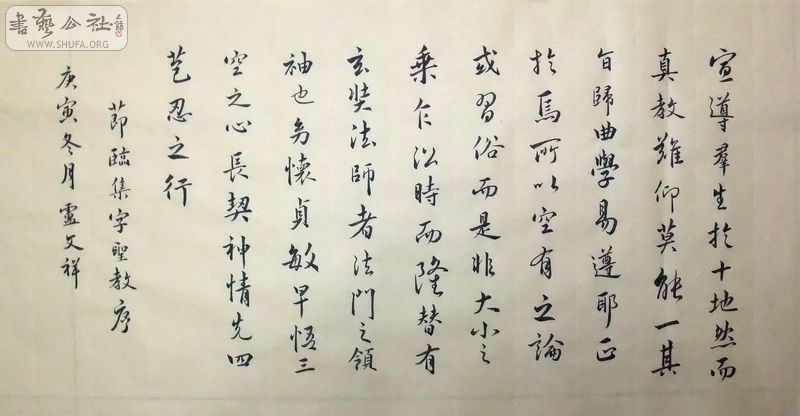 書藝公社
WWW.SHUFA.ORG
宣導羣生扵十地然而
真教難仰莫能一其
旨歸曲學易遵耶正
扵焉所以空有之論
或習俗而是非大小之
乘乍沿時而隆替有
玄奘法師者法門之領
袖也幼懷貞敏早悟三
空之心長契神情先四
苞忍之行
節臨集字聖教序
庚寅冬月靈文祥